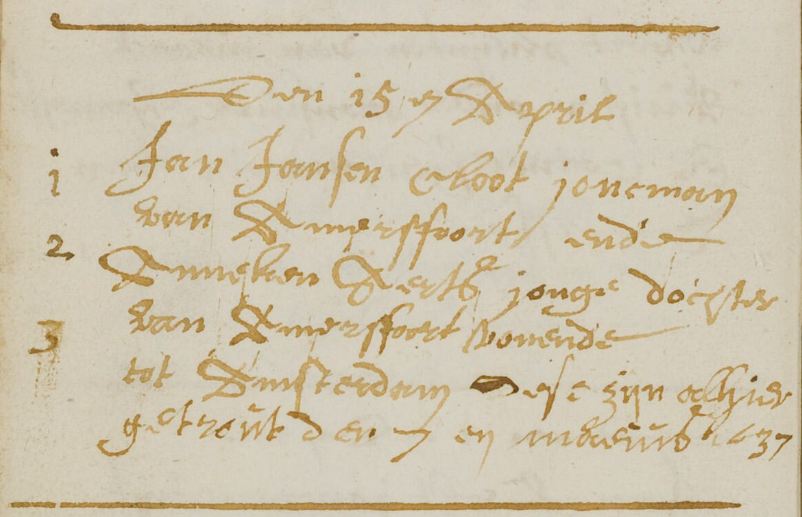 Den 15 en April
1 Jan Jansen Cloot joncman
van Amersffoort ende
2 Anneken Aerts jonge dochter
3 van Amersffoort wonende
tot Amsterdam Dese zijn alhier
getrout den 7 en 1637